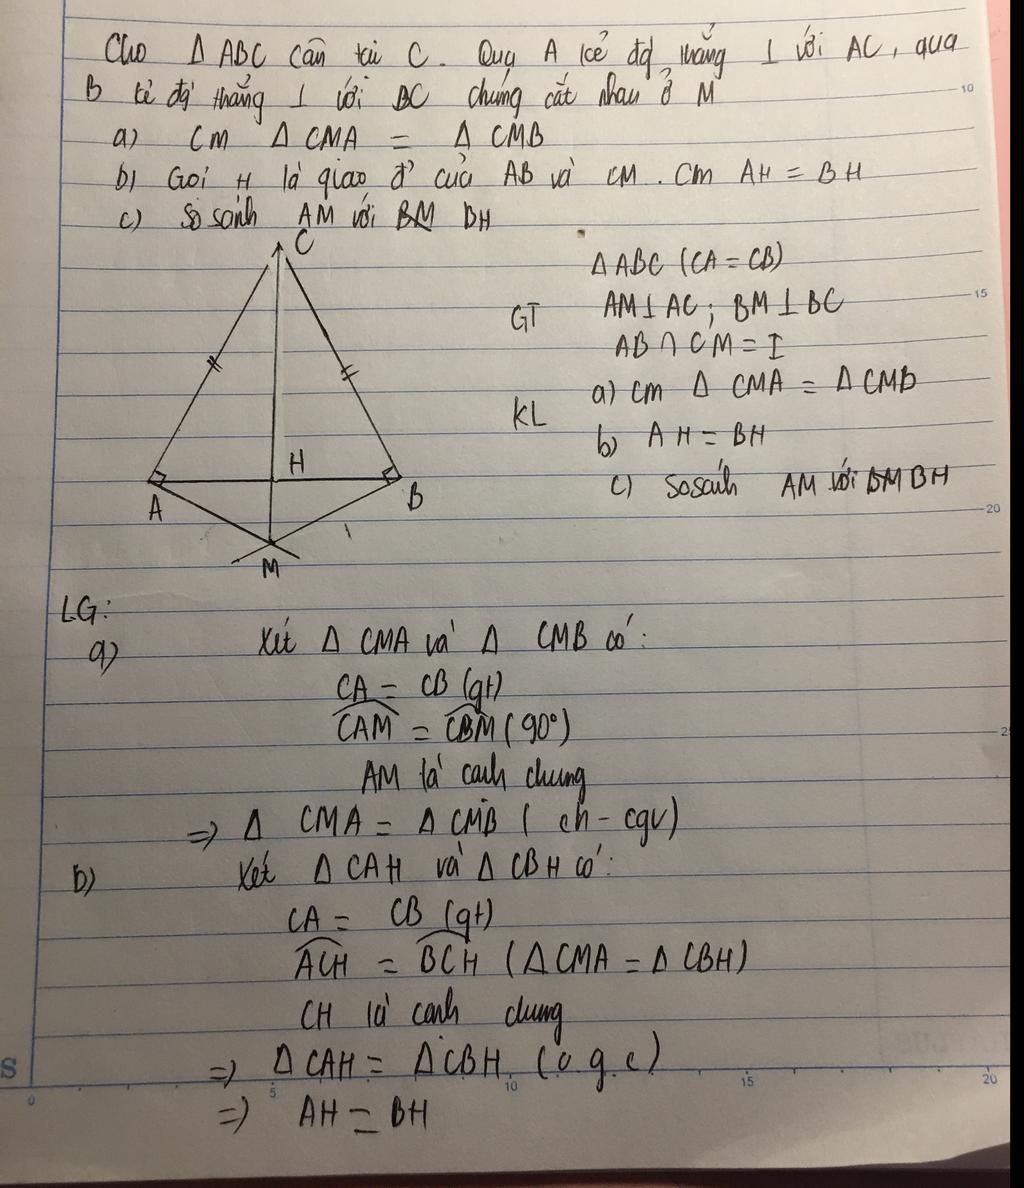 Cho Δ ABC cân tại C. Qua A kẻ đg thẳng ⊥ với AC, qua
B kẻ đg thẳng ⊥ với BC chúng cắt nhau ở M
a) Cm Δ CMA = Δ CMB
b) Gọi H là giao đ' của AB và CM. Cm AH = BH
c) So sánh AM với BM BH
C
ΔABC (CA = CB)
GT AM⊥AC; BM⊥BC
AB ∩ CM = I
KL a) Cm Δ CMA = Δ CMB
b) AH = BH
c) So sánh AM với BM BH
H
A B
M
LG:
a) Xét Δ CMA và Δ CMB có:
CA = CB (gt)
CAM = CBM (90°)
AM là cạnh chung
=> Δ CMA = Δ CMB (ch - cgv)
b) Xét Δ CAH và Δ CBH có:
CA = CB (gt)
ACH = BCH (Δ CMA = Δ CBH)
CH là cạnh chung
=> Δ CAH = Δ CBH (c.g.c)
=> AH = BH
10
15
20
S
0 5 10 15 20